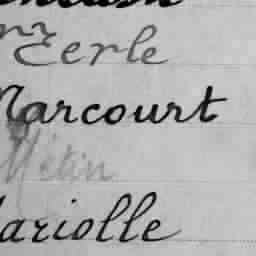 Eerle
Marcourt
Métin
Mariolle